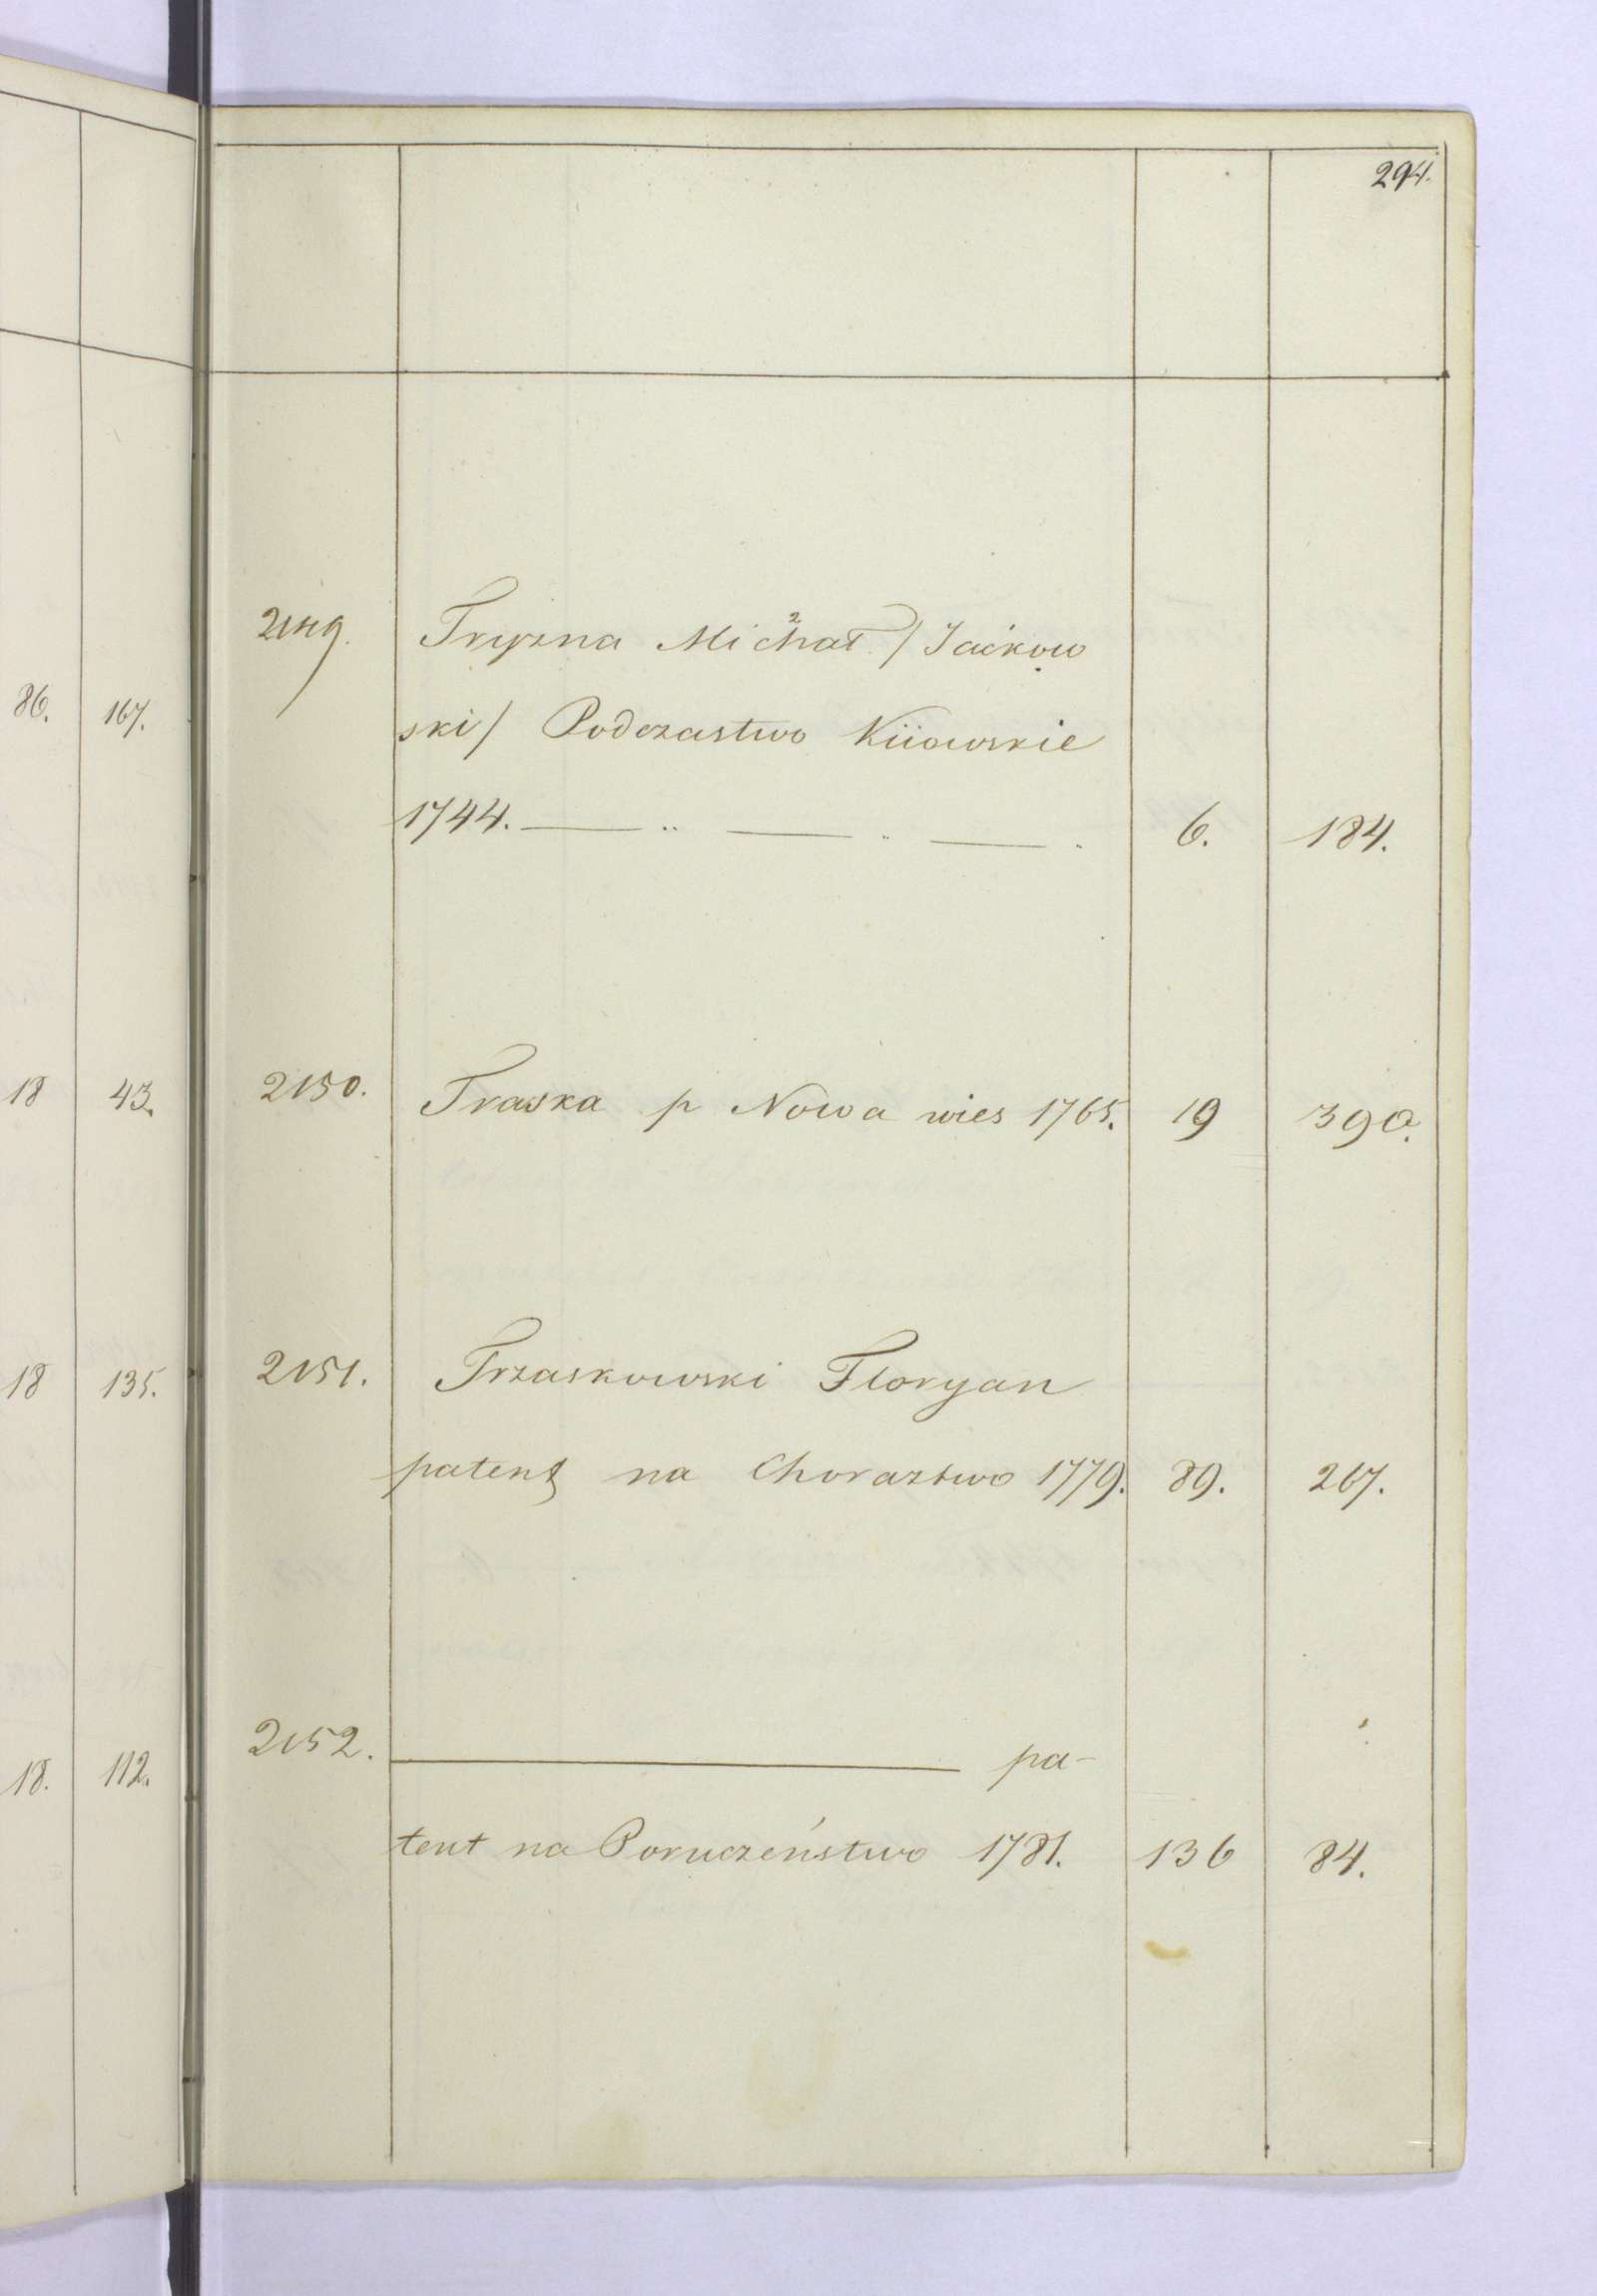 294.
2149. Tryzna Michał /Jaćkow
ski/ Podczastwo Kiiowskie
1744. — „ — „ — „ 6. 184.
2150. Traska p Nowa wies 1765. 19 390.
2151. Trzaskowski Floryan
patent na Choraztwo 1779. 89. 267.
2152. ——— pa-
tent na Poruczeństwo 1781. 136 84.
86. 167.
18 43.
18 135.
18. 112.